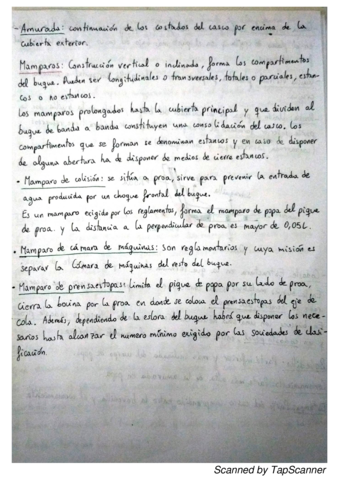 - Amurada: continuación de los costados del casco por encima de la
cubierta exterior.
Mamparos: Construcción vertical o inclinada, forma los compartimentos
del buque. Pueden ser longitudinales o transversales, totales o parciales, estan-
cos o no estancos.
Los mamparos prolongados hasta la cubierta principal y que dividen al
buque de banda a banda constituyen una consolidación del casco. Los
compartimentos que se forman se denominan estancos y en caso de disponer
de alguna abertura ha de disponer de medios de cierre estancos.
• Mamparo de colisión: se sitúa a proa, sirve para prevenir la entrada de
agua producida por un choque frontal del buque.
Es un mamparo exigido por los reglamentos, forma el mamparo de popa del pique
de proa y la distancia a la perpendicular de proa es mayor de 0,05L.
• Mamparo de cámara de máquinas: Son reglamentarios y cuya misión es
separar la Cámara de máquinas del resto del buque.
• Mamparo de prensaestopas: Limita el pique de popa por su lado de proa,
cierra la bocina por la proa en donde se coloca el prensaestopas del eje de
cola. Además, dependiendo de la eslora del buque habrá que disponer los nece-
sarios hasta alcanzar el numero mínimo exigido por las sociedades de clasi-
ficación.
Scanned by TapScanner